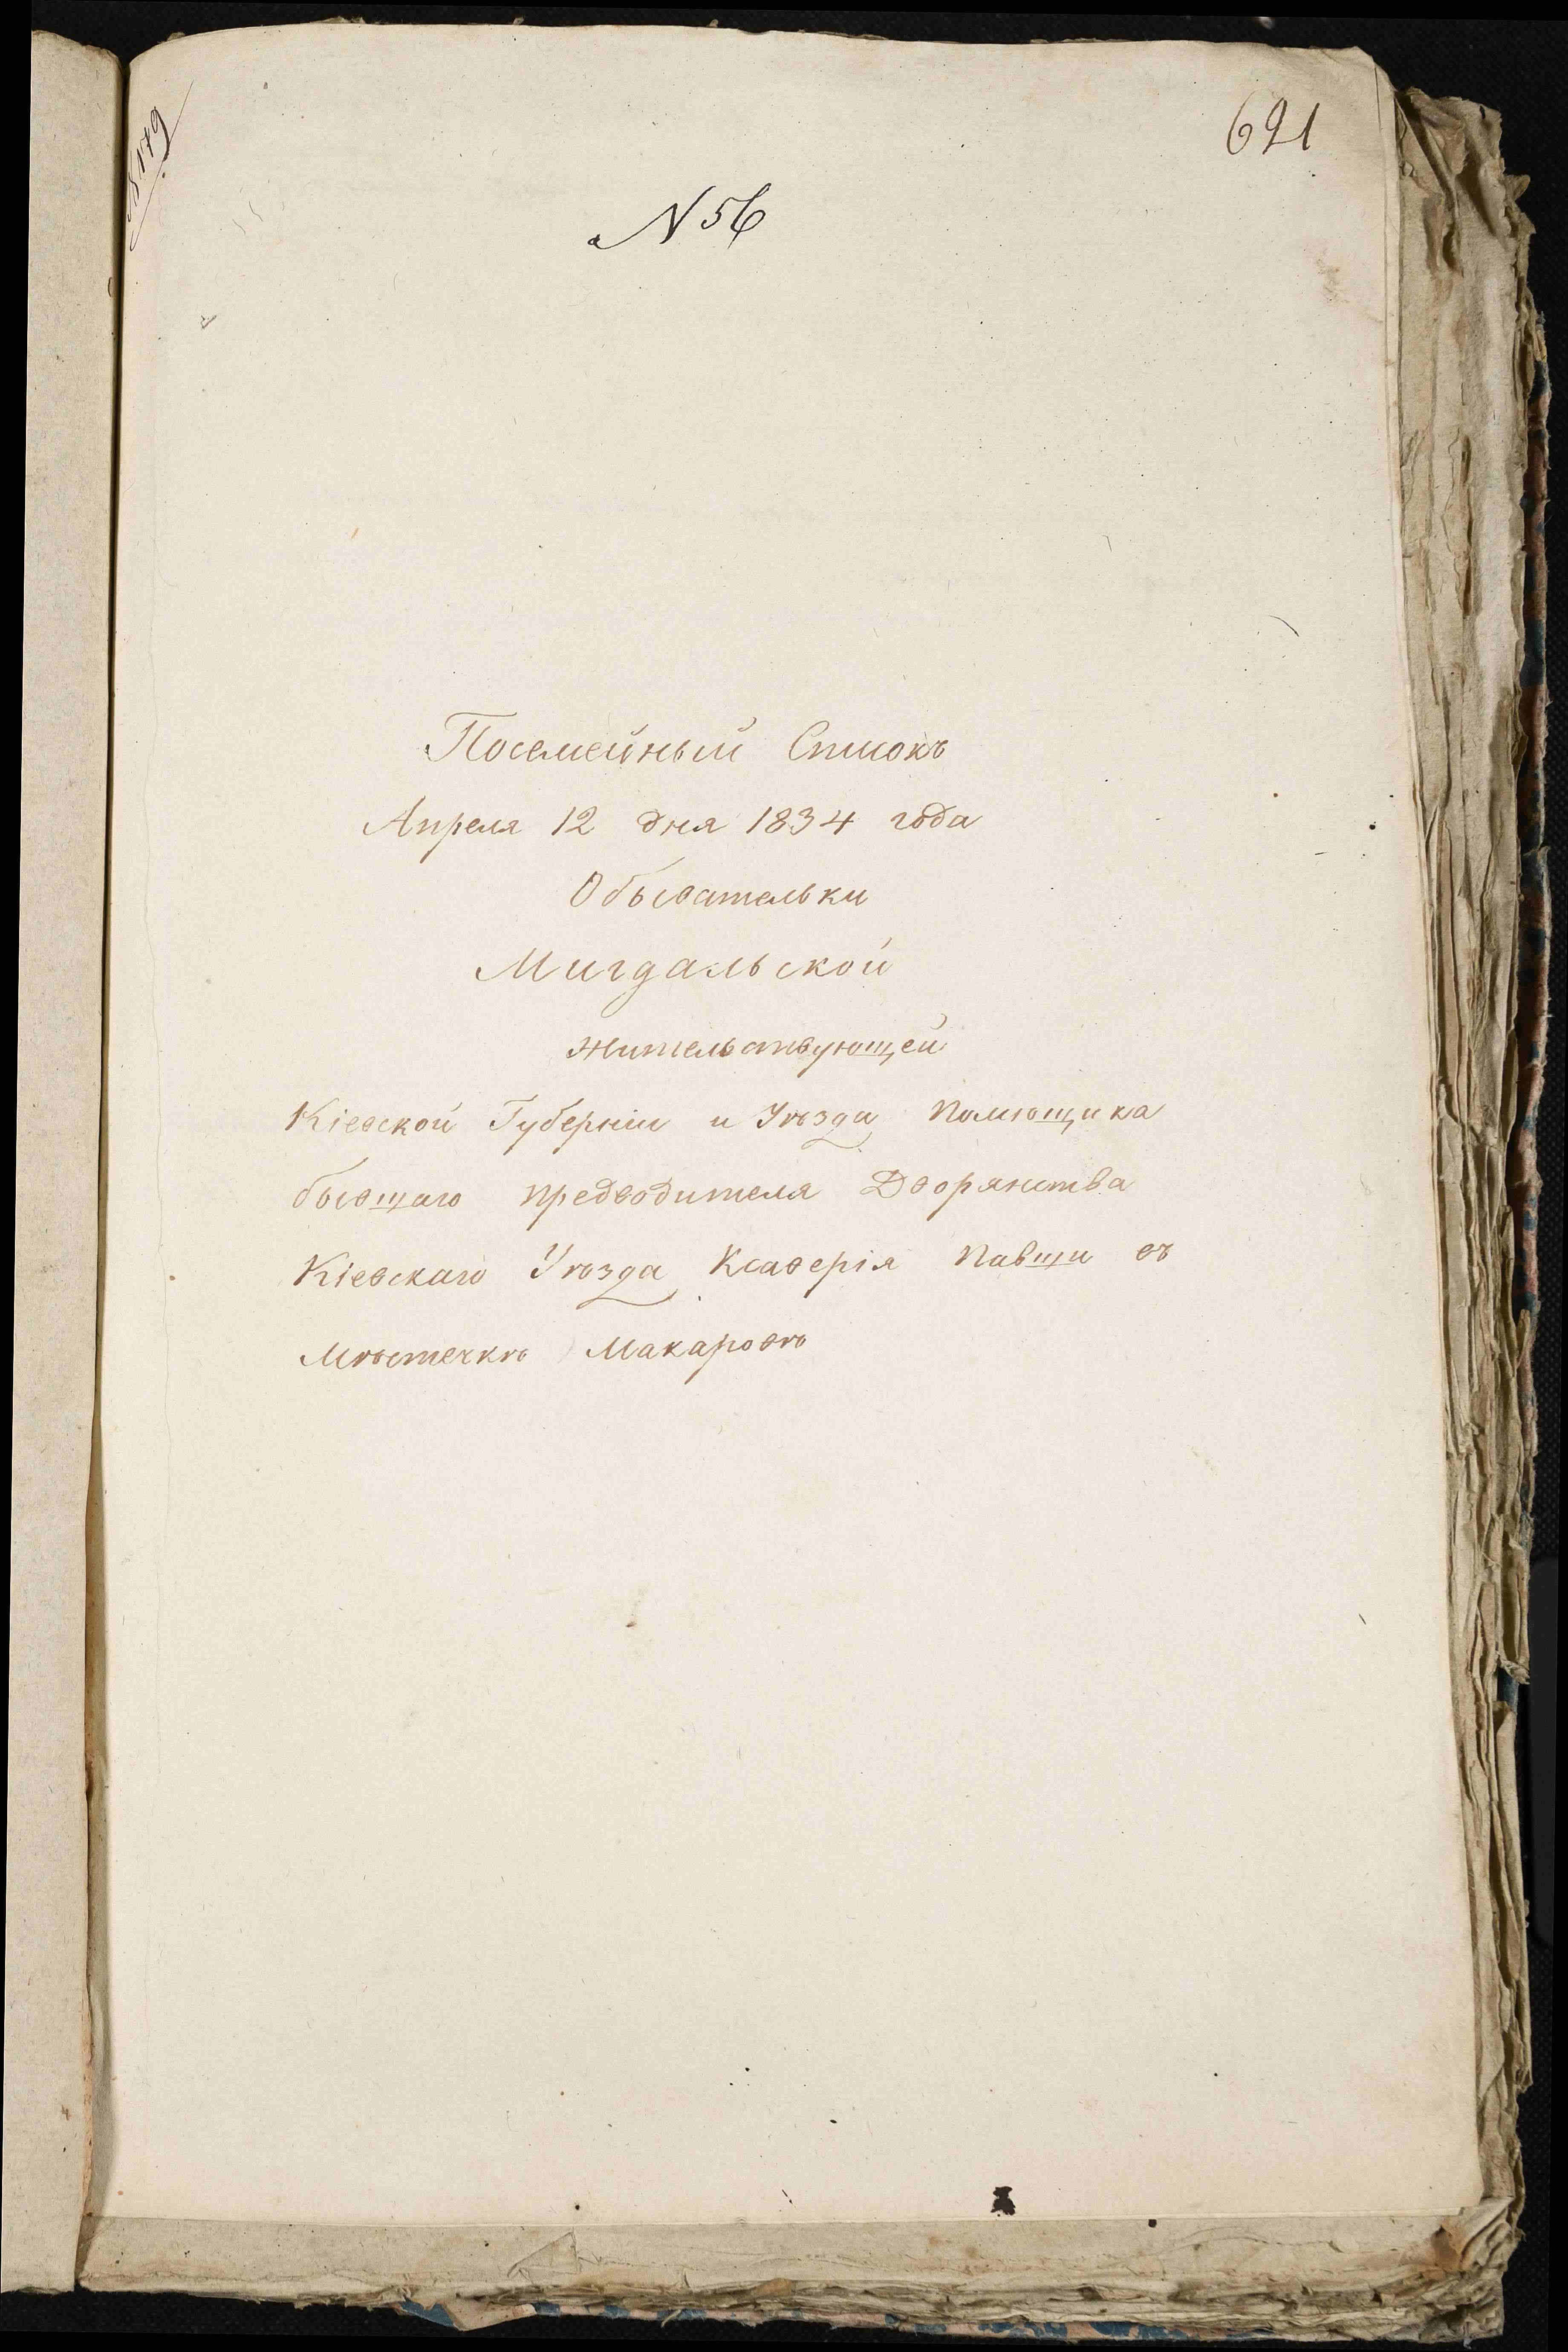 691
8179
N 56
Посемейный Списокъ
Апреля 12 дня 1834 года
Обывательки
Мигдальской
жительствующей
Кіевской Губерніи и Уѣзда Помющика
бывшаго предводителя Дворянства
Кіевскаго Уѣзда Ксаверія Павши въ
Мѣстечкѣ Макаровѣ